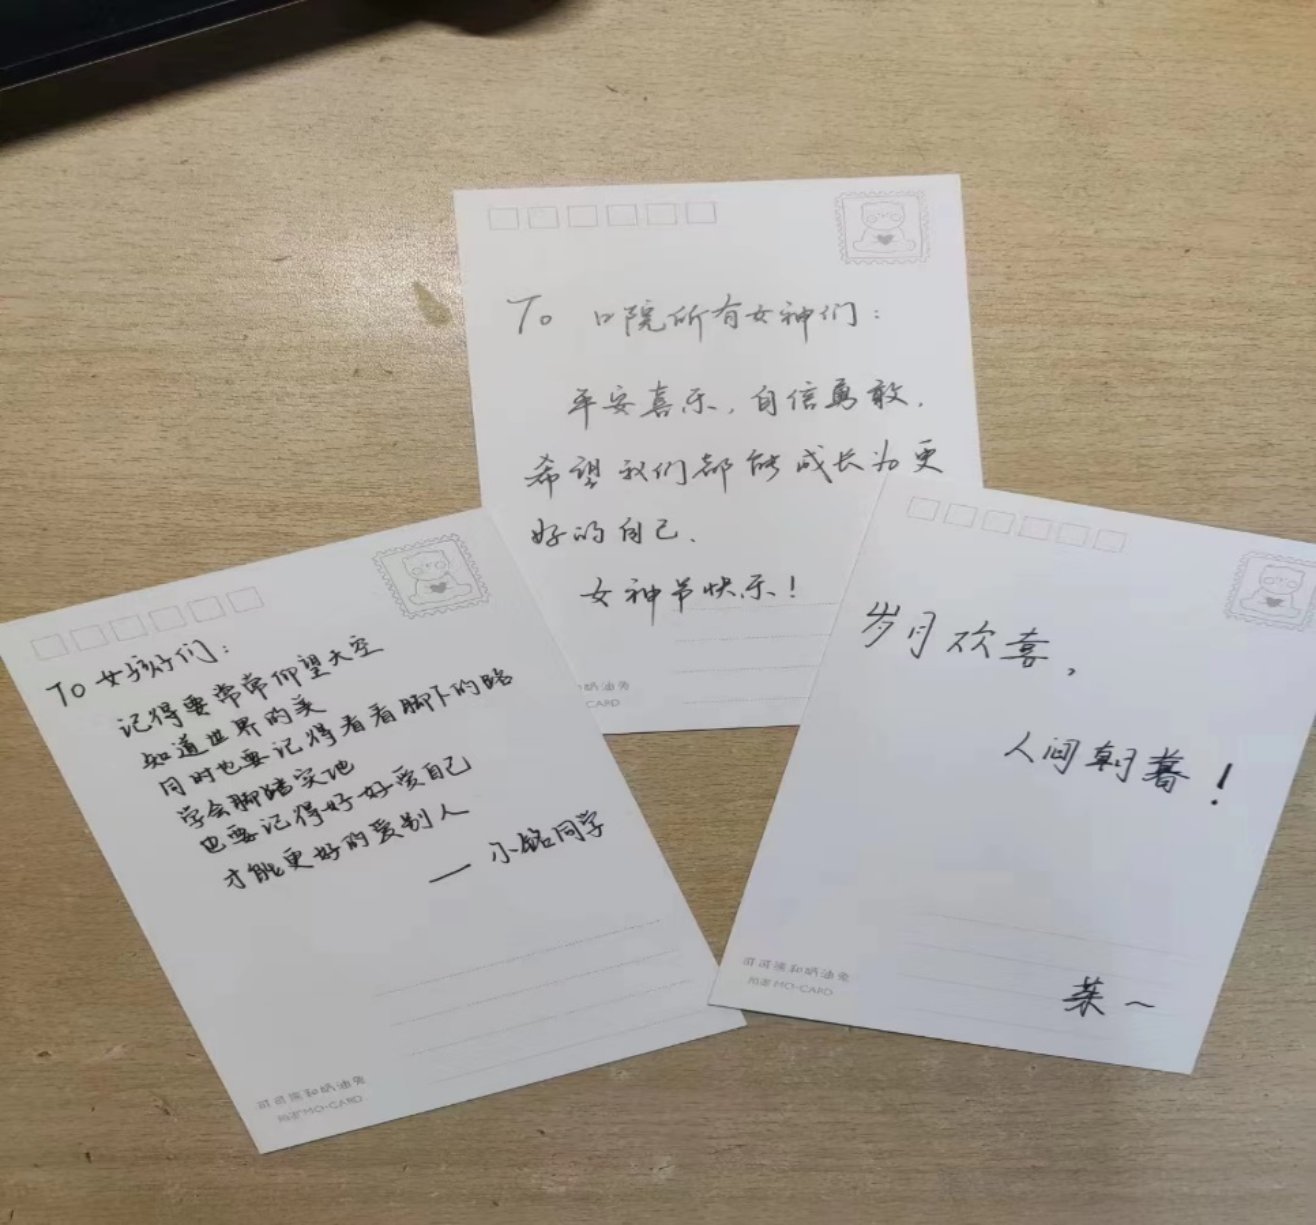 To 口院所有女神们：
平安喜乐，自信勇敢，
希望我们都能成长为更
好的自己．
女神节快乐！
奶油兔
CARD
To 女孩好们：
记得要常常仰望天空
知道世界的美
同时也要记得看看脚下的路
学会脚踏实地
也要记得好好爱自己
才能更好的爱别人
— 小铭同学
可可熊和奶油兔
MO·CARD
岁月欢喜，
人间朝暮！
茶～
可可熊和奶油兔
MO·CARD